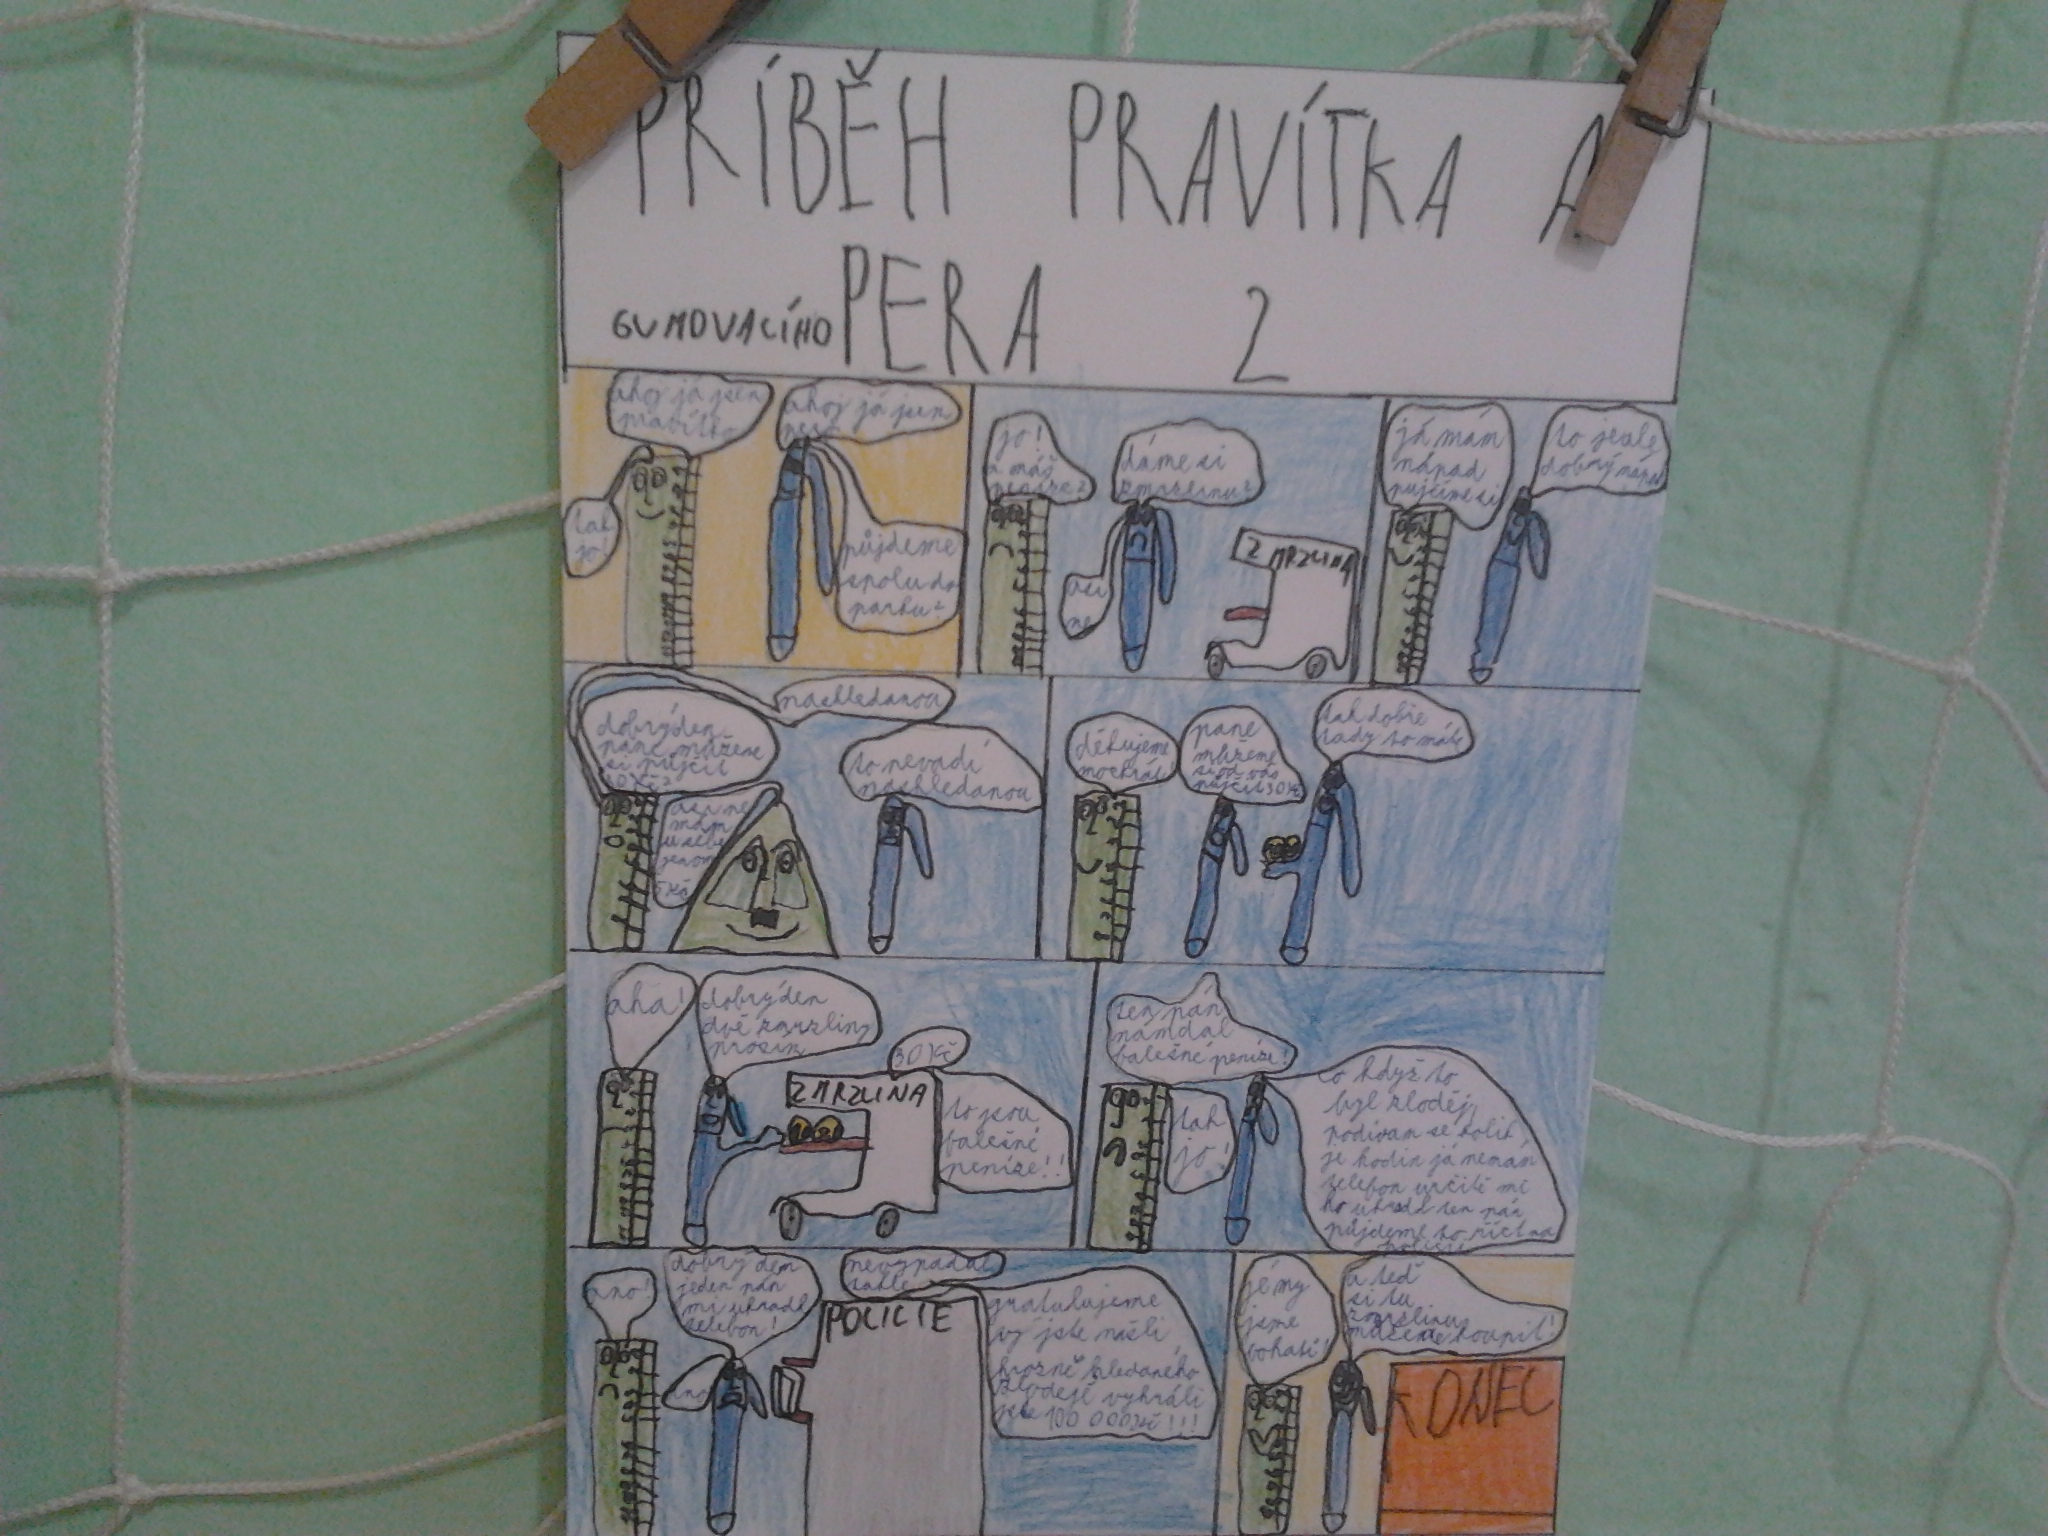 PŘÍBĚH PRAVÍTKA A
GUMOVACÍHO PERA 2
ahoj já jsem
pravítko
ahoj já jsem
pero
půjdeme
spolu do
parku?
tak
jo!
dáme si
zmrzlinu?
jo!
a máš
peníze?
asi
ne
ZMRZLINA
já mám
nápad
pujčíme si
to je ale
dobrý nápad
dobrý den
pane mužeme
si pujčit
30Kč?
asi ne
mám
u sebe
jenom
5Kč
to nevadí
nashledanou
nashledanou
pane
mužeme
si od vás
pujčit 30Kč
tak dobře
tady to máte
děkujeme
mockrát!
dobrý den
dvě zmrzliny
prosím
30Kč
ZMRZLINA
to jsou
falešné
peníze!!
aha!
ten pán
nám dal
falešné peníze!
co když to
byl zloděj,
podívám se kolik
je hodin já nemám
telefon určitě mi
ho ukradl ten pán
půjdeme to říct na
policii
tak
jo!
dobrý den
jeden pán
mi ukradl
telefon!
ano!
nevypadal
takhle
POLICIE
ano
gratulujeme
vy jste našli
hrozně hledaného
zloděje vyhráli
jste 100 000Kč!!!
jé my
jsme
bohatí!
a teď
si tu
zmrzlinu
mužeme koupit!
KONEC